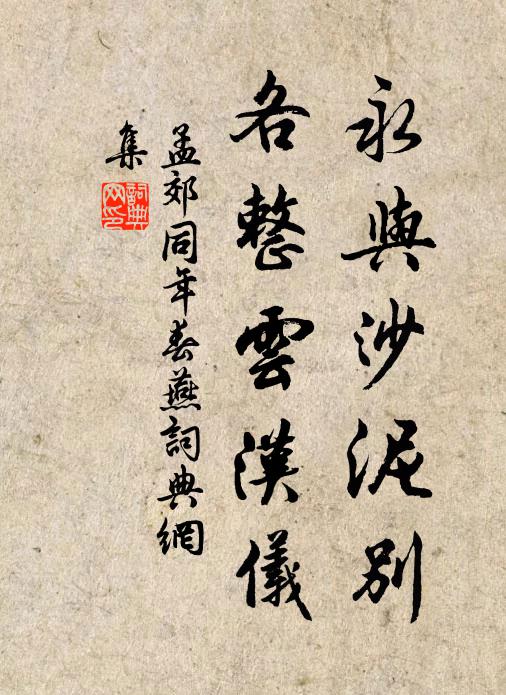 永與沙泥別
各整雲漢儀
孟郊同年春燕詞典網
集
詞典
网印